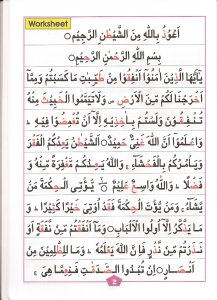 Worksheet
اَعُوْذُ بِاللّٰهِ مِنَ الشَّيْطٰنِ الرَّجِيْمِ
بِسْمِ اللّٰهِ الرَّحْمٰنِ الرَّحِيْمِ
يٰٓاَيُّهَا الَّذِيْنَ اٰمَنُوْٓا اَنْفِقُوْا مِنْ طَيِّبٰتِ مَا كَسَبْتُمْ وَمِمَّآ
اَخْرَجْنَا لَكُمْ مِّنَ الْاَرْضِ وَلَا تَيَمَّمُوا الْخَبِيْثَ مِنْهُ
تُنْفِقُوْنَ وَلَسْتُمْ بِاٰخِذِيْهِ اِلَّآ اَنْ تُغْمِضُوْا فِيْهِ
وَاعْلَمُوْٓا اَنَّ اللّٰهَ غَنِيٌّ حَمِيْدٌ اَلشَّيْطٰنُ يَعِدُكُمُ الْفَقْرَ
وَيَاْمُرُكُمْ بِالْفَحْشَآءِ وَاللّٰهُ يَعِدُكُمْ مَّغْفِرَةً مِّنْهُ وَ
فَضْلًا وَاللّٰهُ وَاسِعٌ عَلِيْمٌ يُّؤْتِى الْحِكْمَةَ مَنْ
يَّشَآءُ وَمَنْ يُّؤْتَ الْحِكْمَةَ فَقَدْ اُوْتِيَ خَيْرًا كَثِيْرًا وَ
مَا يَذَّكَّرُ اِلَّآ اُولُوا الْاَلْبَابِ وَمَآ اَنْفَقْتُمْ مِّنْ نَّفَقَةٍ اَوْ
نَذَرْتُمْ مِّنْ نَّذْرٍ فَاِنَّ اللّٰهَ يَعْلَمُهٗ وَمَا لِلظّٰلِمِيْنَ مِنْ
اَنْصَارٍ اِنْ تُبْدُوا الصَّدَقٰتِ فَنِعِمَّا هِيَ
2